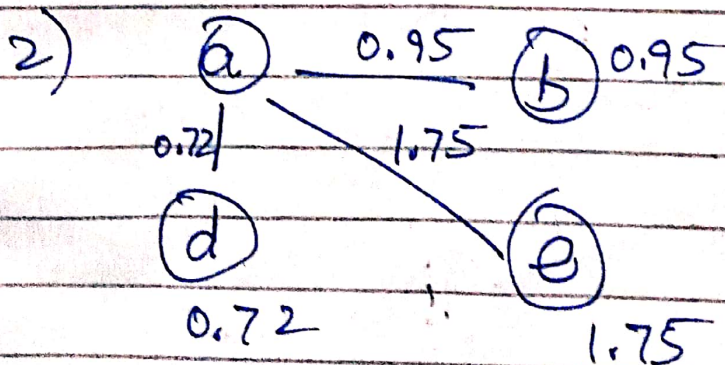 2) a 0.95 b 0.95
0.72 1.75
d e
0.72 1.75